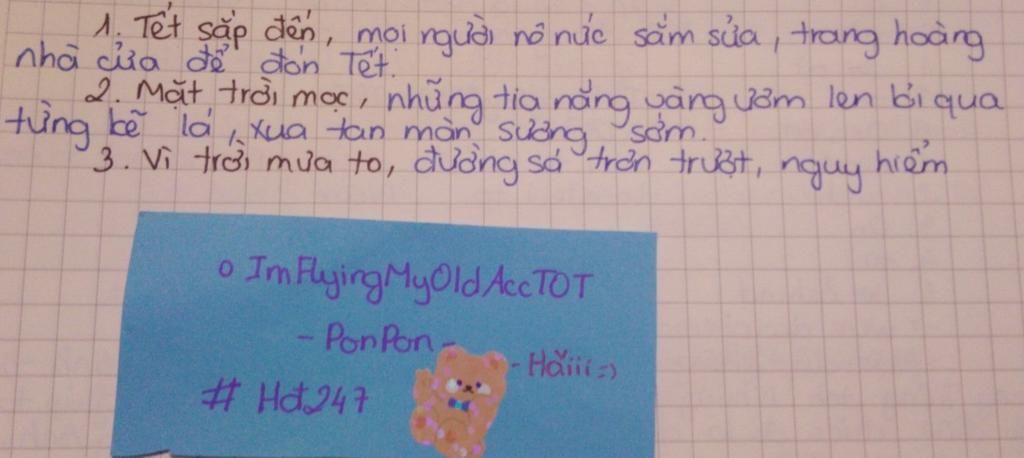 1. Tết sắp đến, mọi người nô nức sắm sửa, trang hoàng
nhà cửa để đón Tết.
2. Mặt trời mọc, những tia nắng vàng ươm len lỏi qua
từng kẽ lá, xua tan màn sương sớm.
3. Vì trời mưa to, đường sá trơn trượt, nguy hiểm
o ImFlyingMyOldAccTOT
- PonPon -
- Hăiii=)
# Hđ247